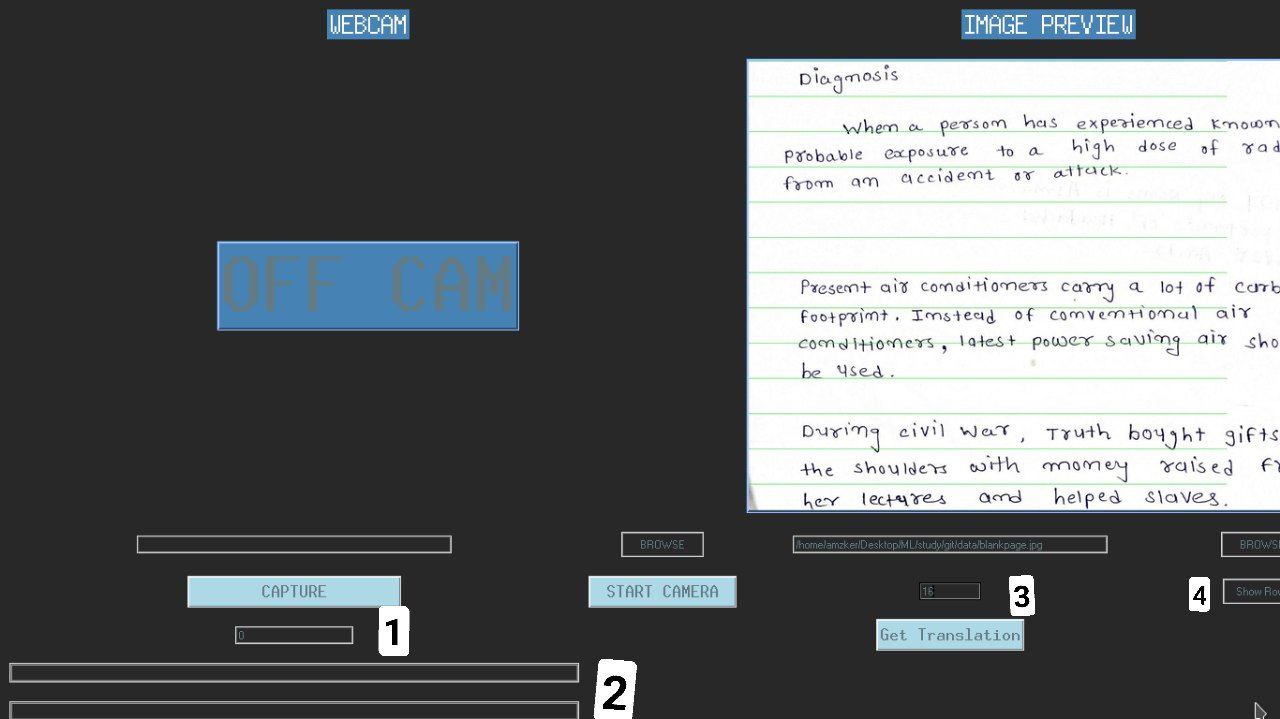 WEBCAM
IMAGE PREVIEW
OFF CAM
Diagnosis
When a person has experienced known
probable exposure to a high dose of rad
from an accident or attack.
Present air conditioners carry a lot of carb
footprint. Instead of conventional air
conditioners, latest power saving air sho
be used.
During civil war, Truth bought gifts
the shoulders with money raised fr
her lectures and helped slaves.
BROWSE
/home/amzker/Desktop/ML/study/git/data/blankpage.jpg
BROWSE
CAPTURE
START CAMERA
16
3
4
Show Row
0
1
Get Translation
2